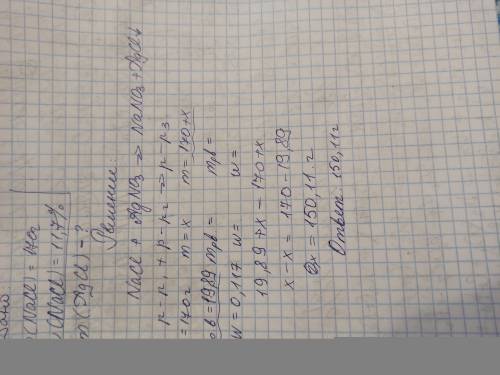 Дано
(NaCl) = 170г
(NaCl) = 11,7%
m(AgCl) - ?
Решение.
NaCl + AgNO3 → NaNO3 + AgCl↓
р-р1 + р-р2 → р-р3
= 170г m = x m = 170+x
в = 19,89 mрв = mрв =
W = 0,117 W = W =
19,89 + x = 170 + x
x - x = 170 - 19,89
x = 150,11 г
Ответ: 150,11г